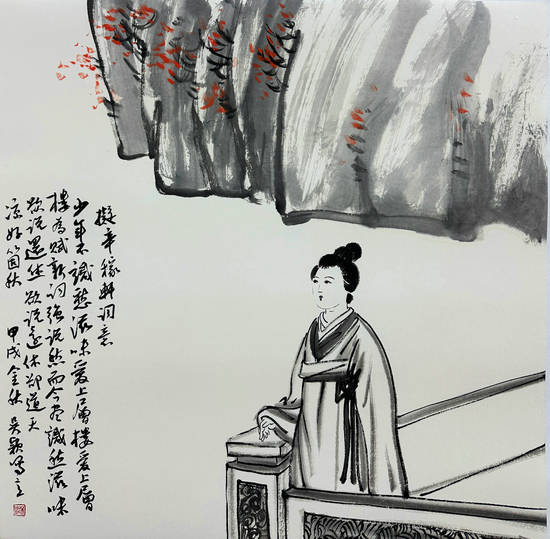 擬辛稼軒詞意
少年不識愁滋味愛上層樓愛上層
樓為賦新詞強説愁而今尽識愁滋味
欲説還休欲説還休却道天
凉好箇秋 甲戌金秋吴颖写之